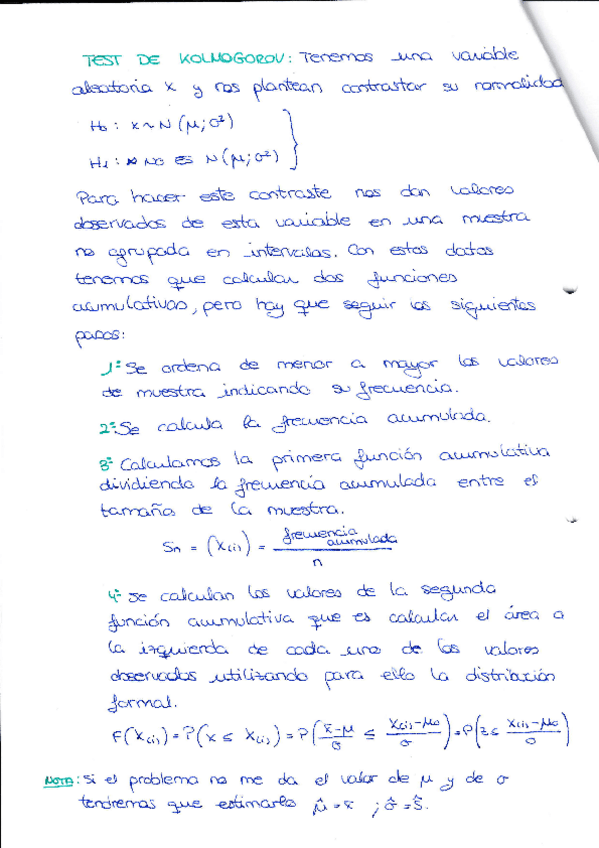 TEST DE KOLMOGOROV: Tenemos una variable
aleatoria x y nos plantean contrastar su normalidad
H₀ : x ~ N (μ; σ²)
H₁ : NO ES N (μ; σ²)
Para hacer este contraste nos dan valores
observados de esta variable en una muestra
no agrupada en intervalos. Con estos datos
tenemos que calcular dos funciones
acumulativas, pero hay que seguir los siguientes
pasos:
1º Se ordena de menor a mayor los valores
de muestra indicando su frecuencia.
2º Se calcula la frecuencia acumulada.
3º Calculamos la primera función acumulativa
dividiendo la frecuencia acumulada entre el
tamaño de la muestra.
Sn = (X(i)) = frecuencia acumulada / n
4º Se calculan los valores de la segunda
función acumulativa que es calcular el área a
la izquierda de cada uno de los valores
observados utilizando para ello la distribución
formal.
F(X(i)) = P(x ≤ X(i)) = P(x-μ/σ ≤ X(i)-μ₀/σ) = P(z ≤ X(i)-μ₀/σ)
NOTA: Si el problema no me da el valor de μ y de σ
tendremos que estimarlo μ̂ = x̄ ; σ̂ = Ŝ.